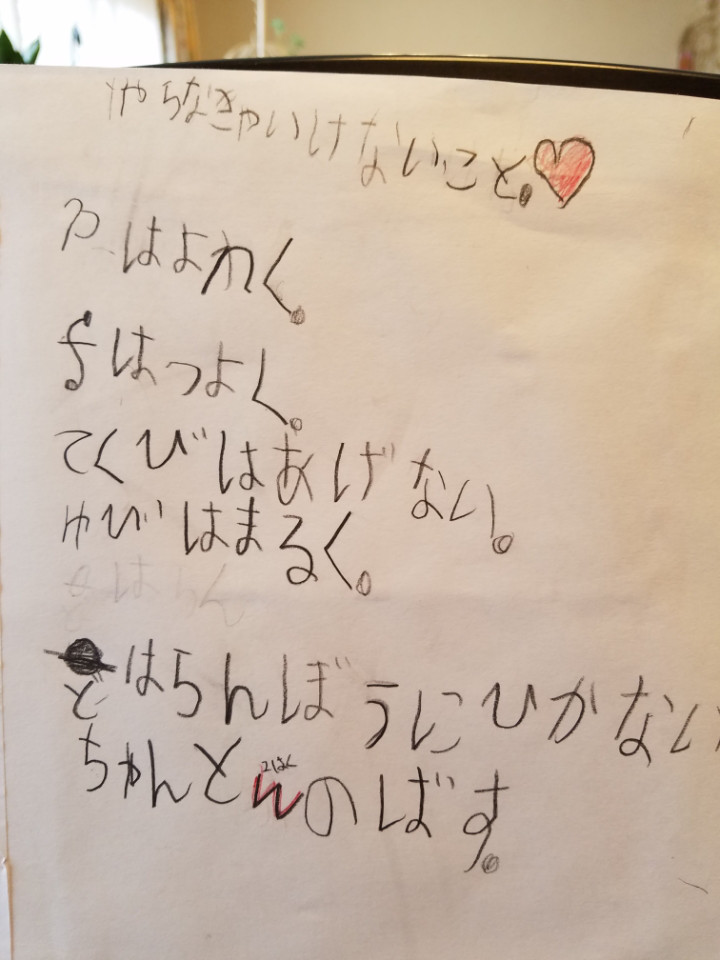 やらなきゃいけないこと。
pはよわく。
fはつよく。
てくびはあげない。
ゆびはまるく。
はらんぼうにひかない
ど
2はく
ちゃんとんのばす。